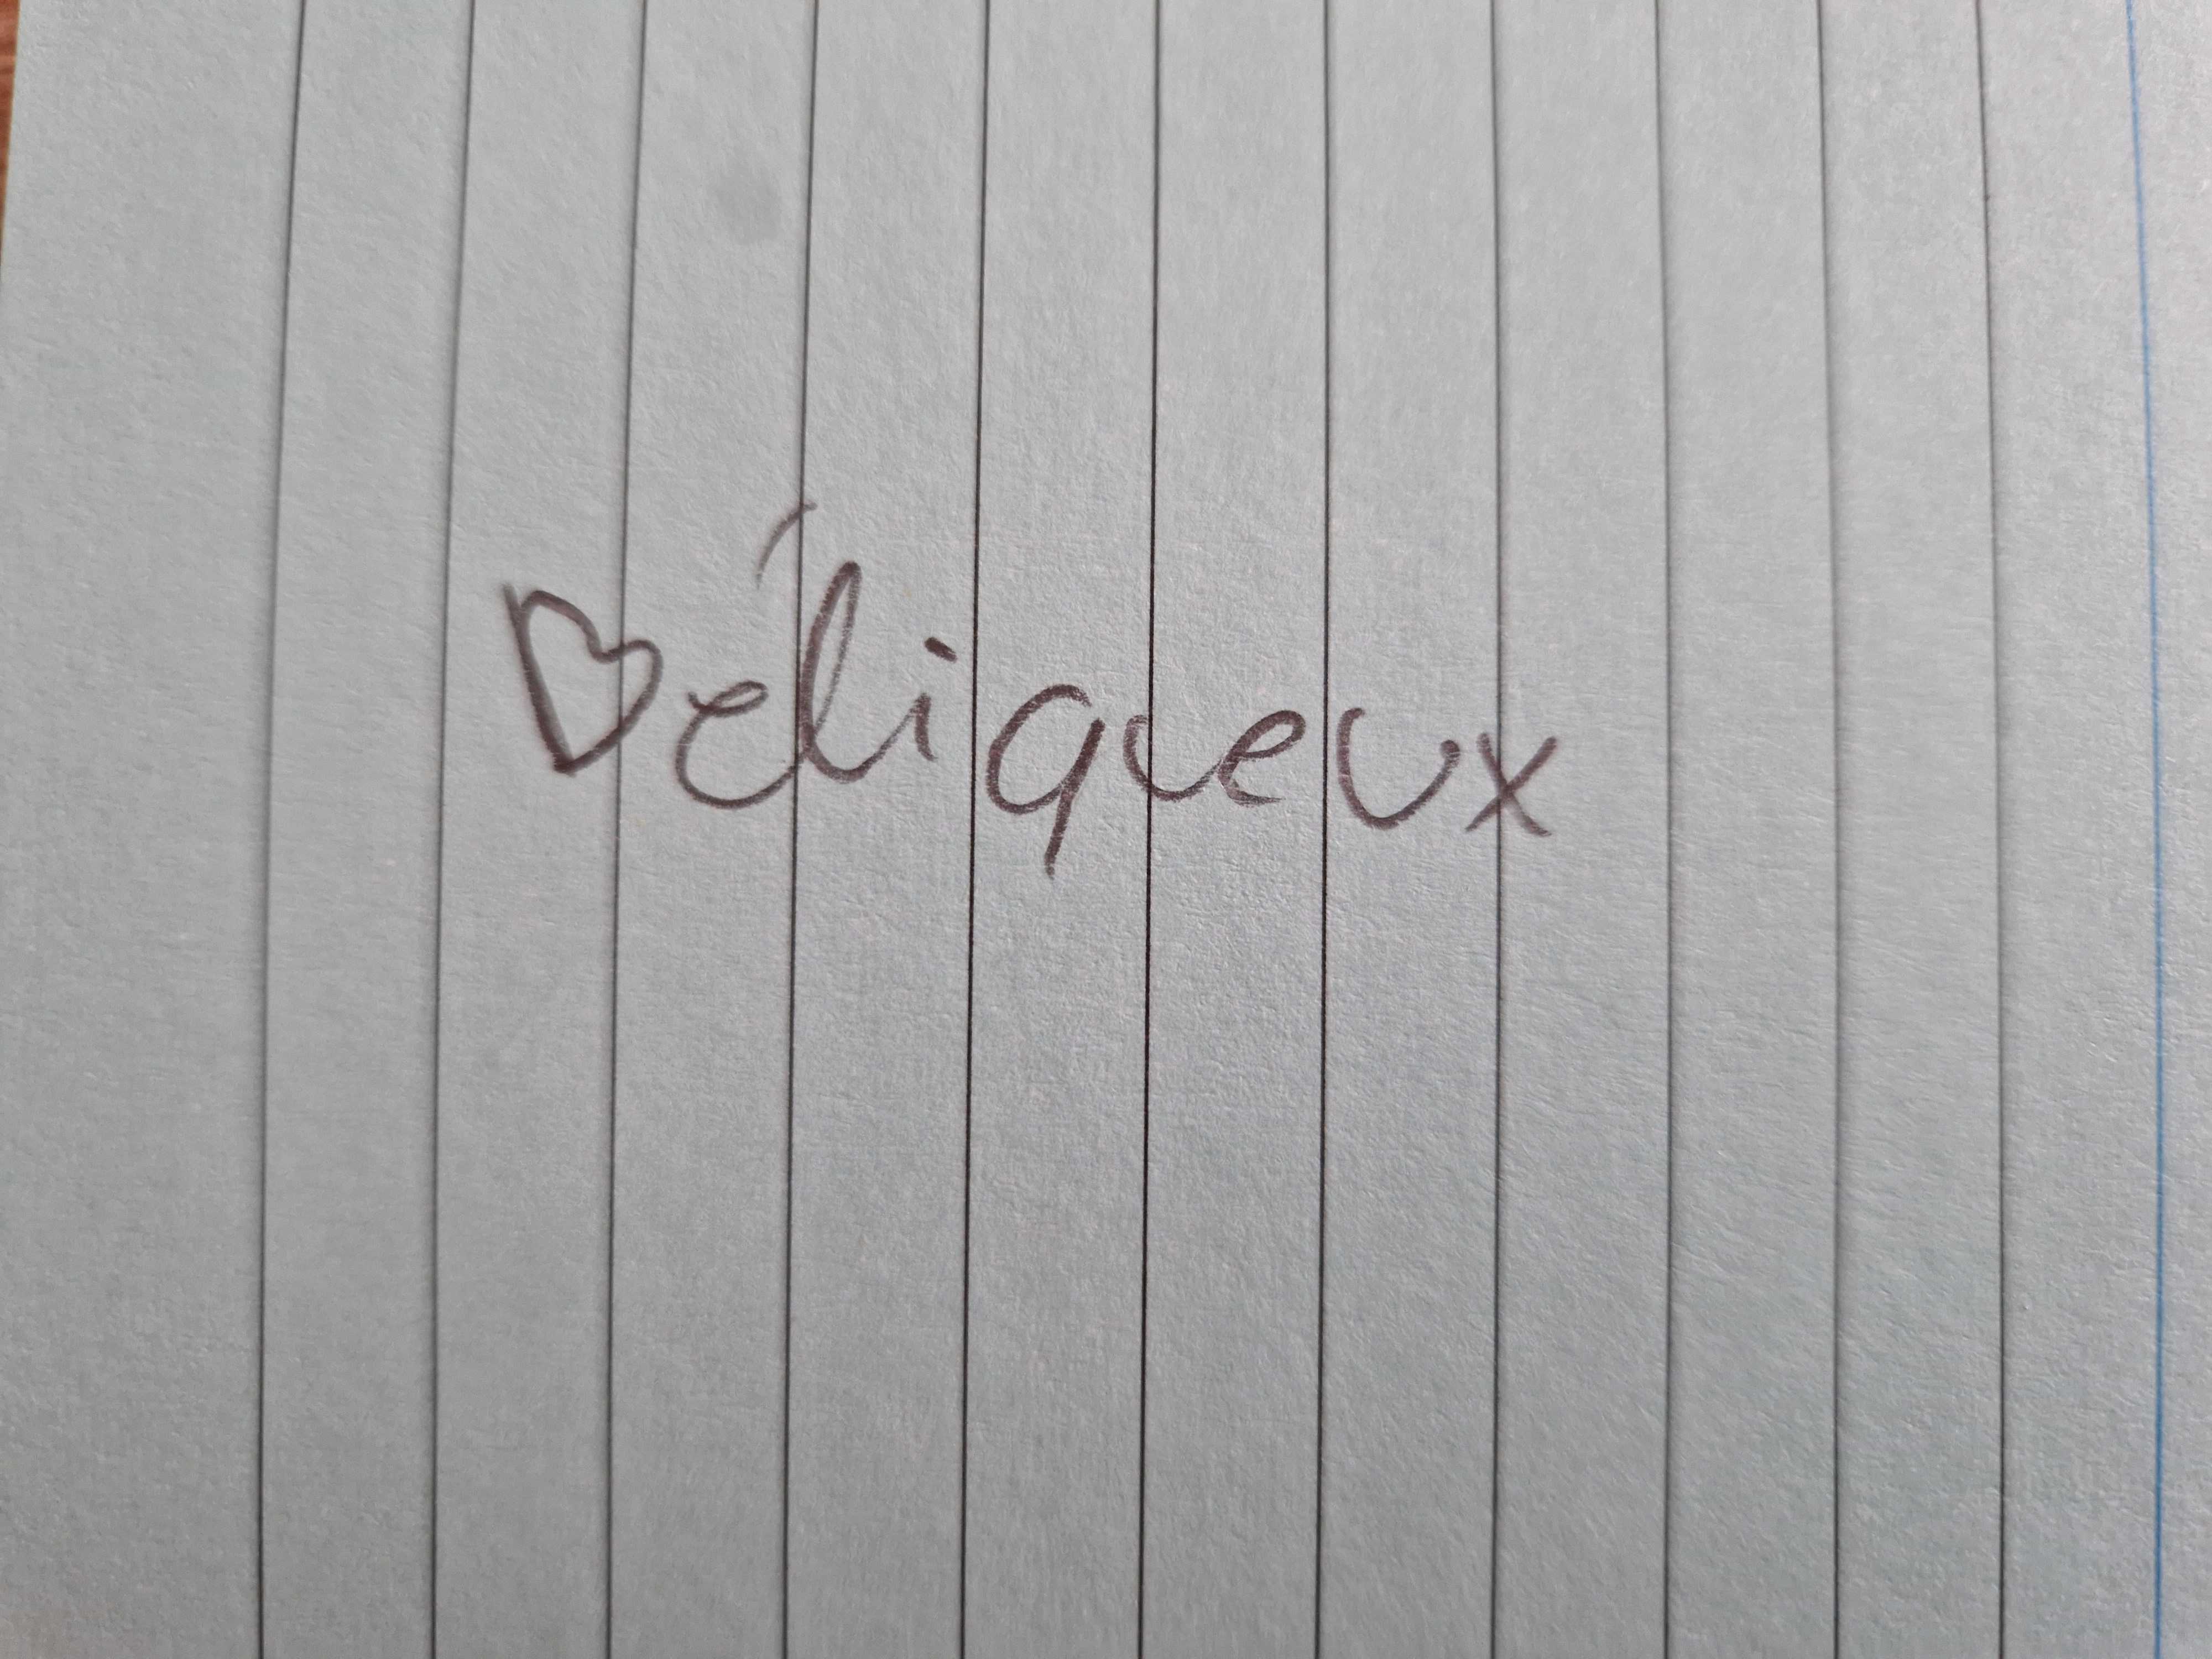 ♡éliqueux